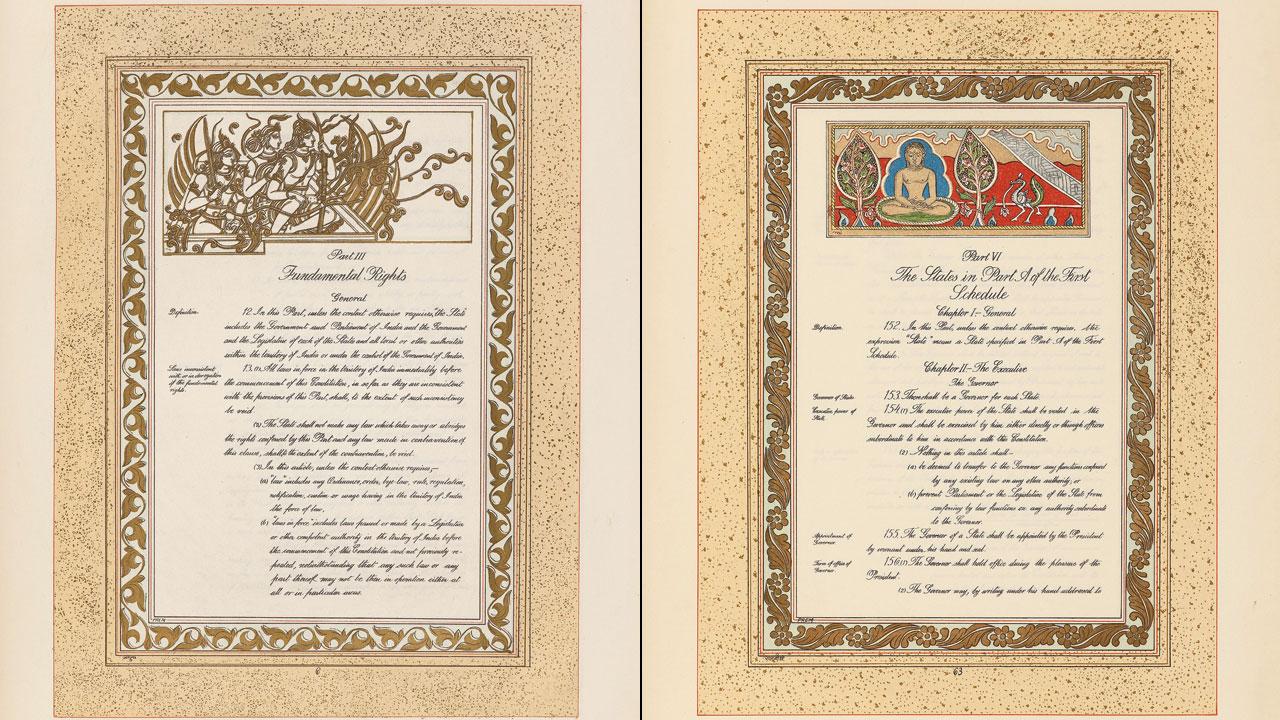 Part III
Fundamental Rights
General
Definition.
12. In this Part, unless the context otherwise requires, "the State"
includes the Government and Parliament of India and the Government
and the Legislature of each of the States and all local or other authorities
within the territory of India or under the control of the Government of India.
Laws inconsistent
with or in derogation
of the fundamental
rights.
13. (1) All laws in force in the territory of India immediately before
the commencement of this Constitution, in so far as they are inconsistent
with the provisions of this Part, shall, to the extent of such inconsistency
be void.
(2) The State shall not make any law which takes away or abridges
the rights conferred by this Part and any law made in contravention of
this clause, shall, to the extent of the contravention, be void.
(3) In this article, unless the context otherwise requires,—
(a) "law" includes any Ordinance, order, bye-law, rule, regulation,
notification, custom or usage having in the territory of India
the force of law;
(b) "laws in force" includes laws passed or made by a Legislature
or other competent authority in the territory of India before
the commencement of this Constitution and not previously re-
pealed, notwithstanding that any such law or any
part thereof may not be then in operation either at
all or in particular areas.
PREM
6
Part VI
The States in Part A of the First
Schedule
Chapter I.—General
Definition.
152. In this Part, unless the context otherwise requires, the
expression "State" means a State specified in Part A of the First
Schedule.
Chapter II—The Executive
The Governor
Governor of States.
153. There shall be a Governor for each State.
Executive power of
State.
154. (1) The executive power of the State shall be vested in the
Governor and shall be exercised by him either directly or through officers
subordinate to him in accordance with this Constitution.
(2) Nothing in this article shall—
(a) be deemed to transfer to the Governor any functions conferred
by any existing law on any other authority; or
(b) prevent Parliament or the Legislature of the State from
conferring by law functions on any authority subordinate
to the Governor.
Appointment of
Governor.
155. The Governor of a State shall be appointed by the President
by warrant under his hand and seal.
Term of office of
Governor.
156. (1) The Governor shall hold office during the pleasure of the
President.
(2) The Governor may, by writing under his hand addressed to
PREM
63